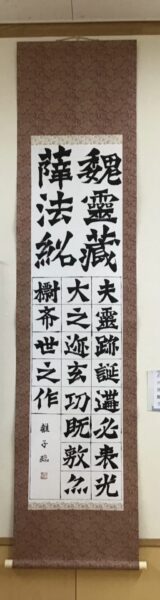 魏靈藏
薛法紹
夫靈跡誕遘必表光
大之迹玄功既敷亦
標希世之作
子臨